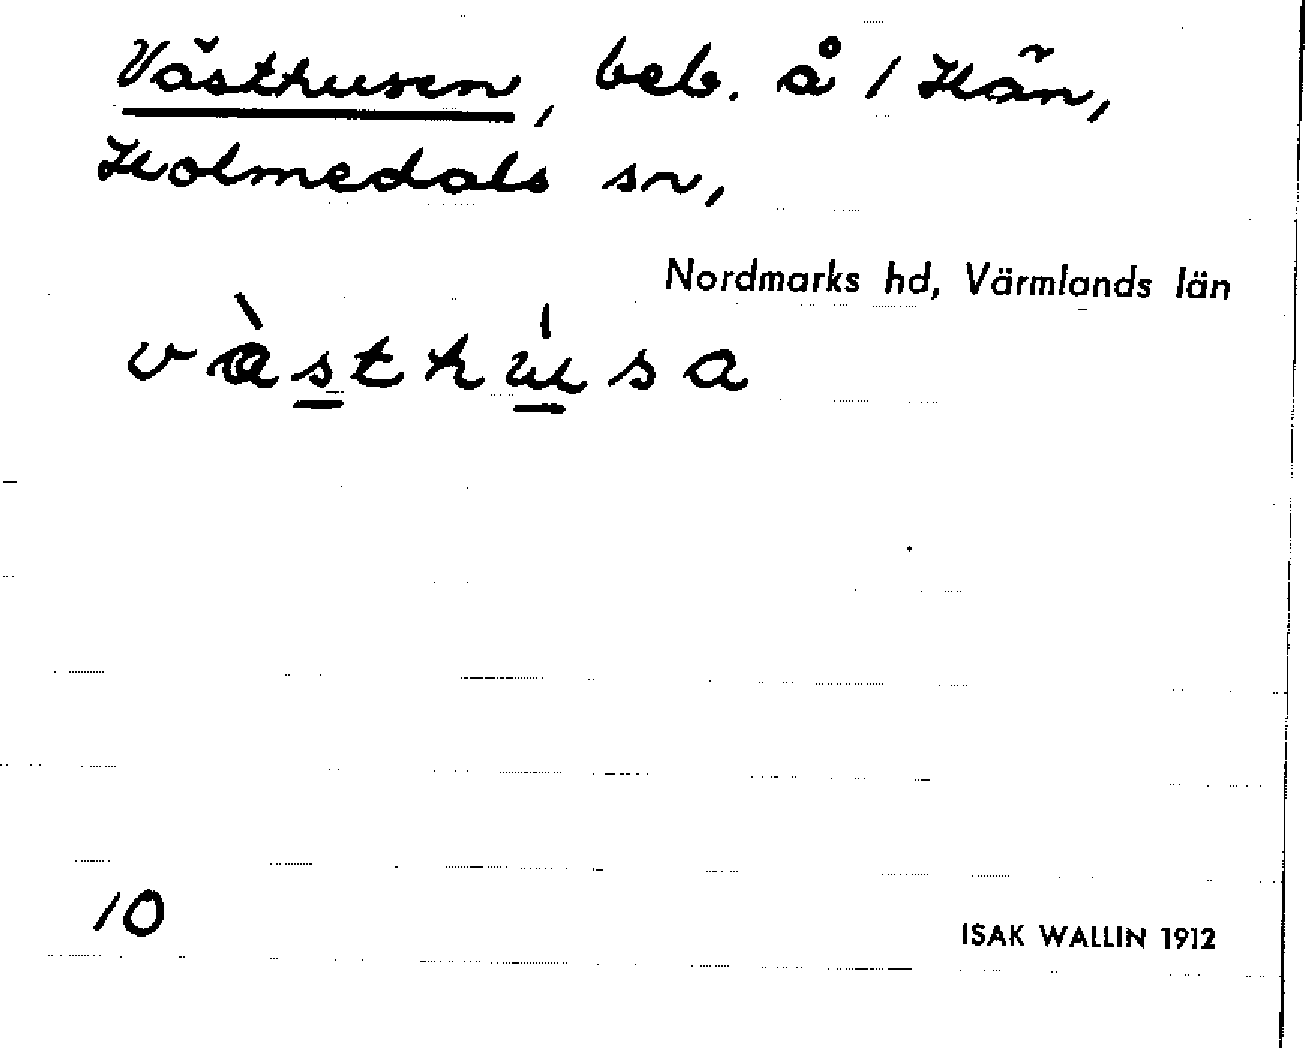 Västhusen, beb. å / Hän,
Holmedals sn,
Nordmarks hd, Värmlands län
vàsthúsa
10
ISAK WALLIN 1912